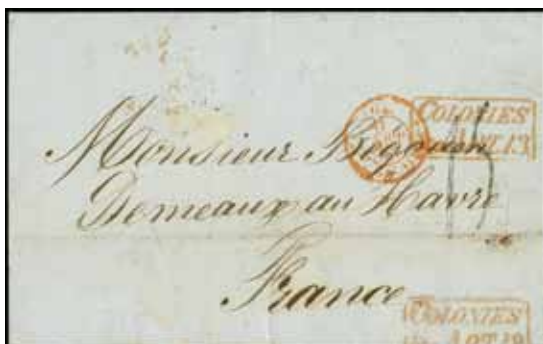 COLONIES
ART.13
Monsieur Begouen
Demeaux au Havre
France
COLONIES
ART.19